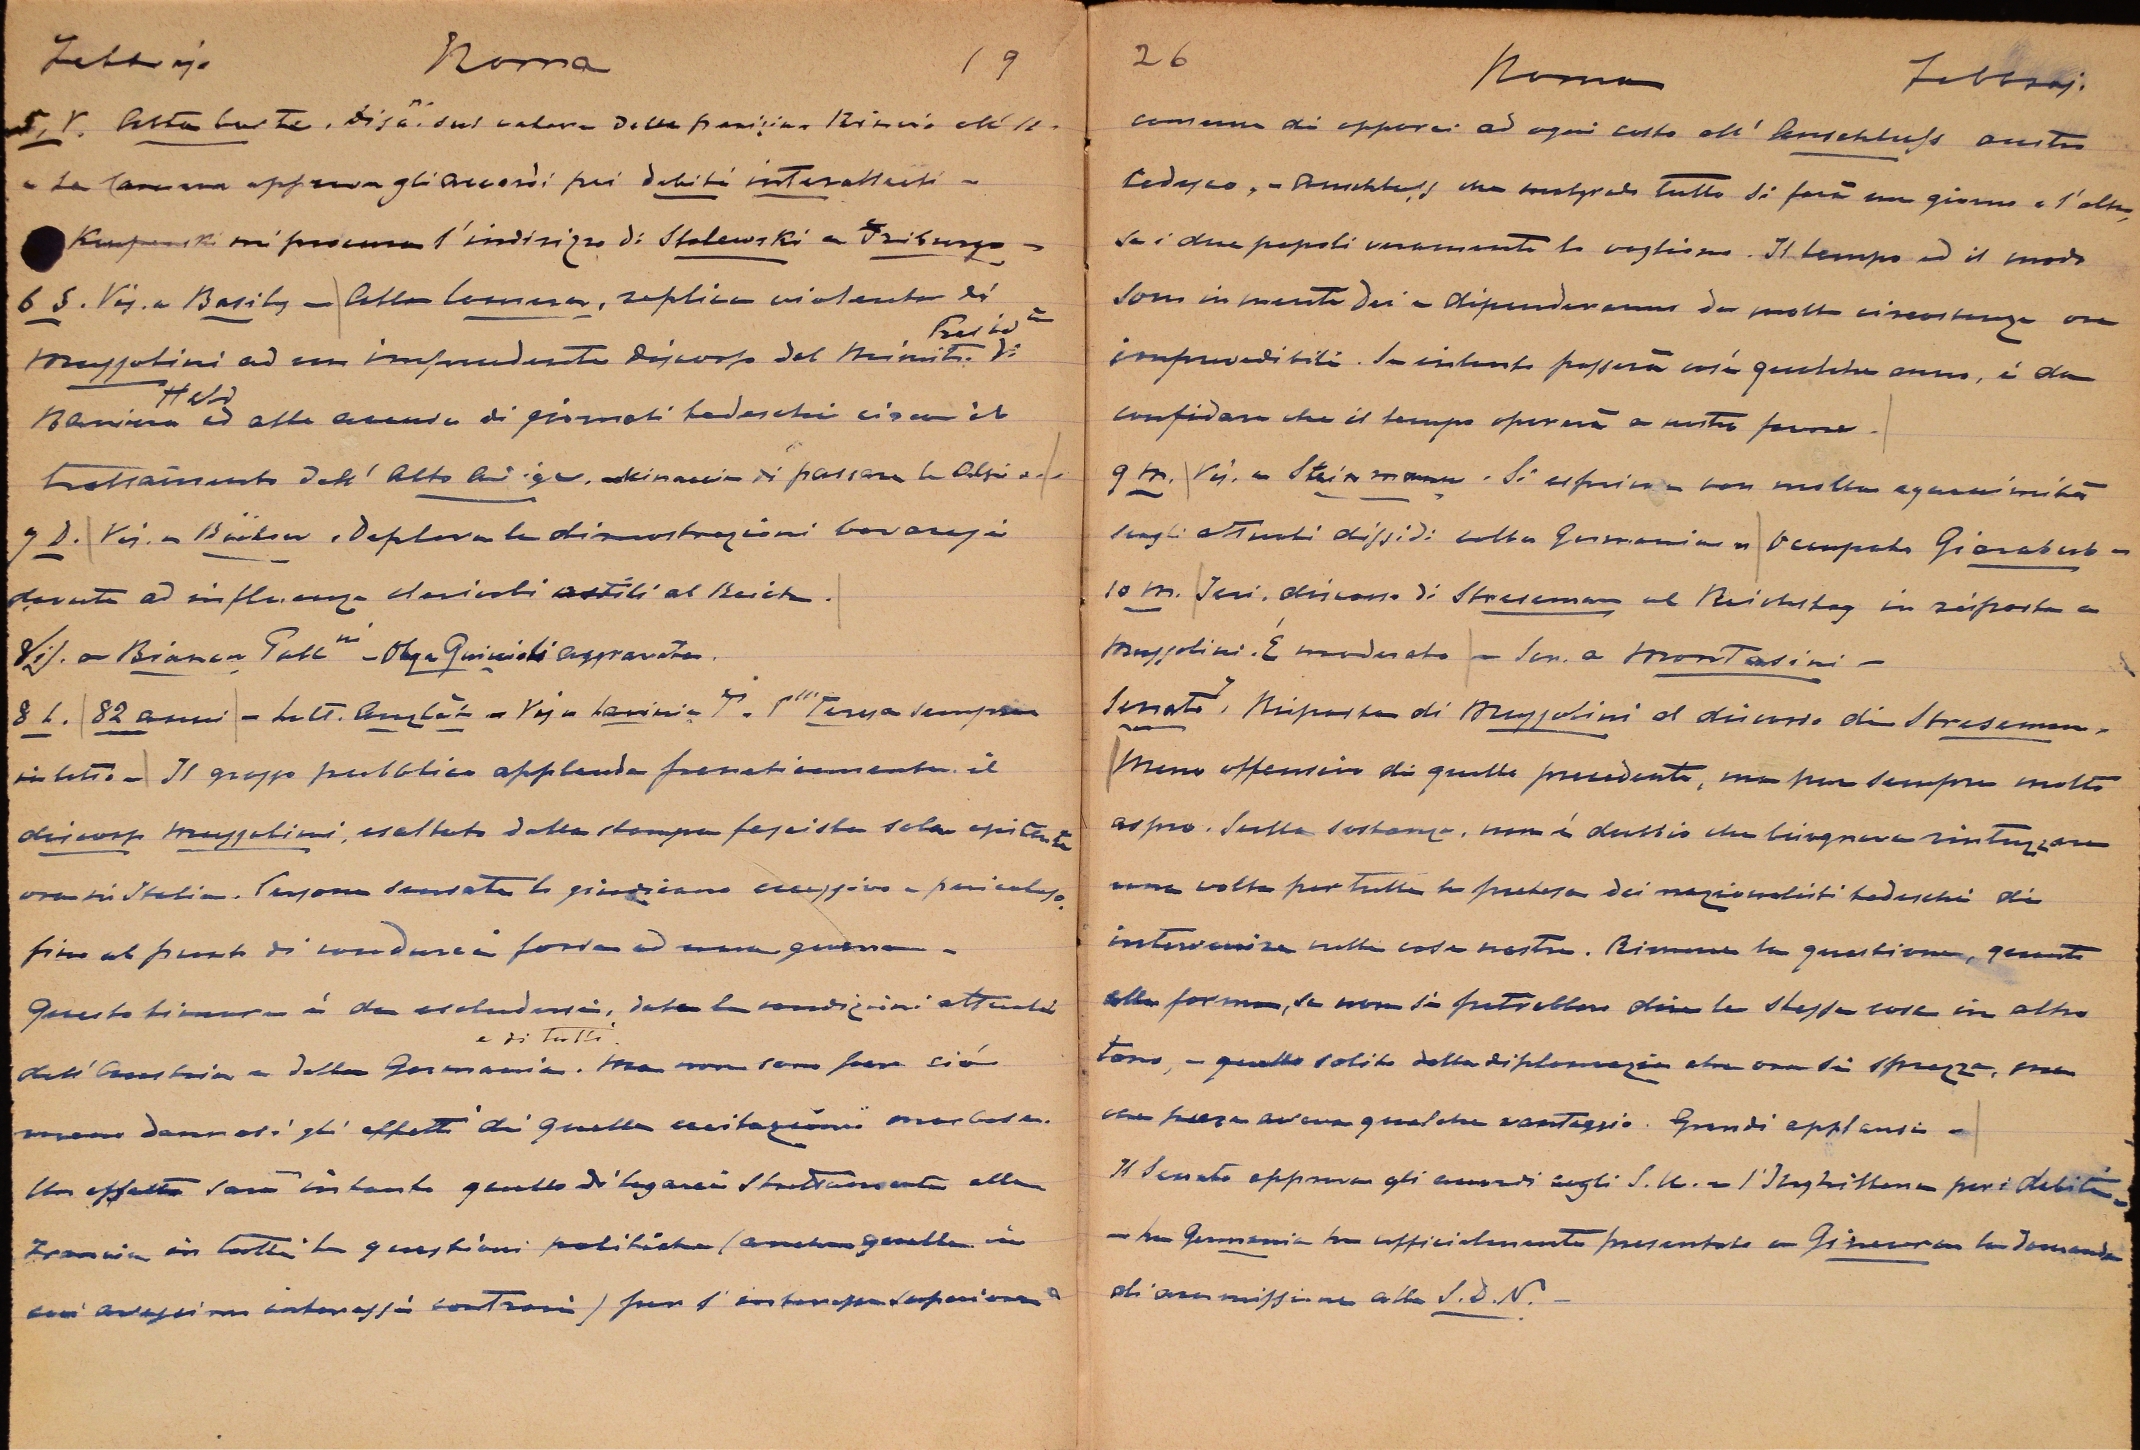 Febbraio Roma 19
5, V. Alla Corte. Disc.ni sul valore della
e la Camera approva gli accordi pei debiti interalleati -
mi procura l'indirizzo di Stalewski a Friburgo -
6 S. Vis. a Basily - Alla Camera, replica violenta di
Mussolini ad un imprudente discorso del Ministro Preside di
Baviera Held ed alle accuse di giornali tedeschi circa il
trattamento dell'Alto Adige. Minaccia di passare le Alpi
7 D. Vis. a Bülow. Deplora le dimostrazioni bavaresi
dovute ad influenze clericali ostili al Reich.
Vis. a Bianca - Olga aggravata.
8 L. 82 anni - Lett. - Vis. a Lavinia T. P.ssa Teresa sempre
in letto - Il grosso pubblico applaude freneticamente il
discorso Mussolini, esaltato dalla stampa fascista sola esistente
ora in Italia. Persone sensate lo giudicano eccessivo e pericoloso,
fino al punto di condurci forse ad una guerra -
Questo timore è da escludersi, date le condizioni attuali
dell'Austria e della Germania e di tutti. Ma non sono per ciò
meno dannosi gli effetti di quelle escitazioni morbose.
Un effetto sarà intanto quello di legarci strettamente alla
Francia in tutte le questioni politiche (anche quelle in
cui avessimo interessi contrari) per l'interesse superiore e
26 Roma Febbraio
comune di opporci ad ogni costo all'Anschluss austro
tedesco, - Anschluss che malgrado tutto si farà un giorno o l'altro,
se i due popoli veramente lo vogliono. Il tempo ed il modo
sono in mente Dei e dipenderanno da molte circostanze ora
imprevedibili. Se intanto passerà così qualche anno, è da
confidare che il tempo opererà a nostro favore.
9 M. Vis. a Steinmann. Si esprime con molta equanimità
sugli attuali dissidi colla Germania - Occupata Giarabub -
10 M. Ieri, discorso di Stresemann al Reichstag in risposta a
Mussolini. È moderato - Ser. a Montasini -
Senato, Risposta di Mussolini al discorso di Stresemann.
Meno offensiva di quella precedente, ma pur sempre molto
aspra. Sulla sostanza, non è dubbio che bisognava rintuzzare
una volta per tutte le pretese dei nazionalisti tedeschi di
intervenire nelle cose nostre. Rimane la questione, quanto
alla forma, se non si potrebbero dire le stesse cose in altro
tono, - quello solito della diplomazia che ora si sprezza, ma
che pure aveva qualche vantaggio. Grandi applausi -
Il Senato approva gli accordi cogli S.U. e l'Inghilterra per i debiti -
- La Germania ha ufficialmente presentato a Ginevra la domanda
di ammissione alla S.D.N. -